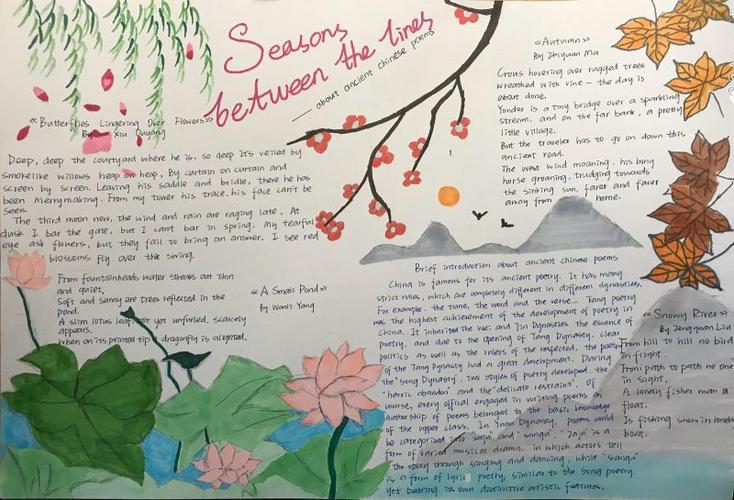 Seasons
between the lines
— about ancient chinese poems
«Butterflies Lingering Over Flowers»
By Xiu Ouyang
Deep, deep the courtyard where he is, so deep It's veiled by
smokelike willows heap on heap, By curtain on curtain and
screen by screen. Leaving his saddle and bridle, there he has
been merrymaking. From my tower his trace, his face can't be
seen.
The third moon now, the wind and rain are raging late, At
dusk I bar the gate, but I can't bar in spring. My tearful
eye ask flowers, but they fail to bring an answer. I see red
blossoms fly over the swing.
«A Small Pond»
by Wanli Yang
From fountainhead water streaks out thin
and quiet,
Soft and sunny are trees reflected in the
pond.
A slim lotus leaf, not yet unfurled, scarcely
appears,
When on its pointed tip a dragonfly is alighted.
«Autumn»
By Zhiyuan Ma
Crows hovering over rugged trees
wreathed with vine — the day is
about done.
Yonder is a tiny bridge over a sparkling
stream, and on the far bank, a pretty
little village.
But the traveler has to go on down this
ancient road.
The west wind moaning, his bony
horse groaning, trudging towards
the sinking sun, farer and farer
away from home.
Brief introduction about ancient chinese poems
China is famous for its ancient poetry. It has many
strict rules, which are completely different in different dynasties.
For example, the tune, the word and the verse... Tang poetry
was the highest achievement of the development of poetry in
China. It inherited the Wei and Jin Dynasties the essence of
poetry, and due to the opening of Tang Dynasty, clear
politics as well as the rulers of the respected, the poetry
of the Tang Dynasty had a great development. During
the Song Dynasty, two styles of poetry developed, the
"heroic abandon" and the "delicate restraint". Of
course, every official engaged in writing poems as
authorship of poems belonged to the basic knowledge
of the upper class. In Yuan Dynasty, poems could
be categorized into "Zaju" and "sanqu". "Zaju" is a
form of varied musical drama, in which actors tell
the story through singing and dancing, while "sanqu"
is a form of lyric poetry, similar to the Song poetry,
yet bearing its own distinctive artistic features.
«Snowy River»
By Zongyuan Liu
From hill to hill no bird
in flight.
From path to path no one
in sight.
A lonely fisher man a
float,
Is fishing snow in lonely
boat.